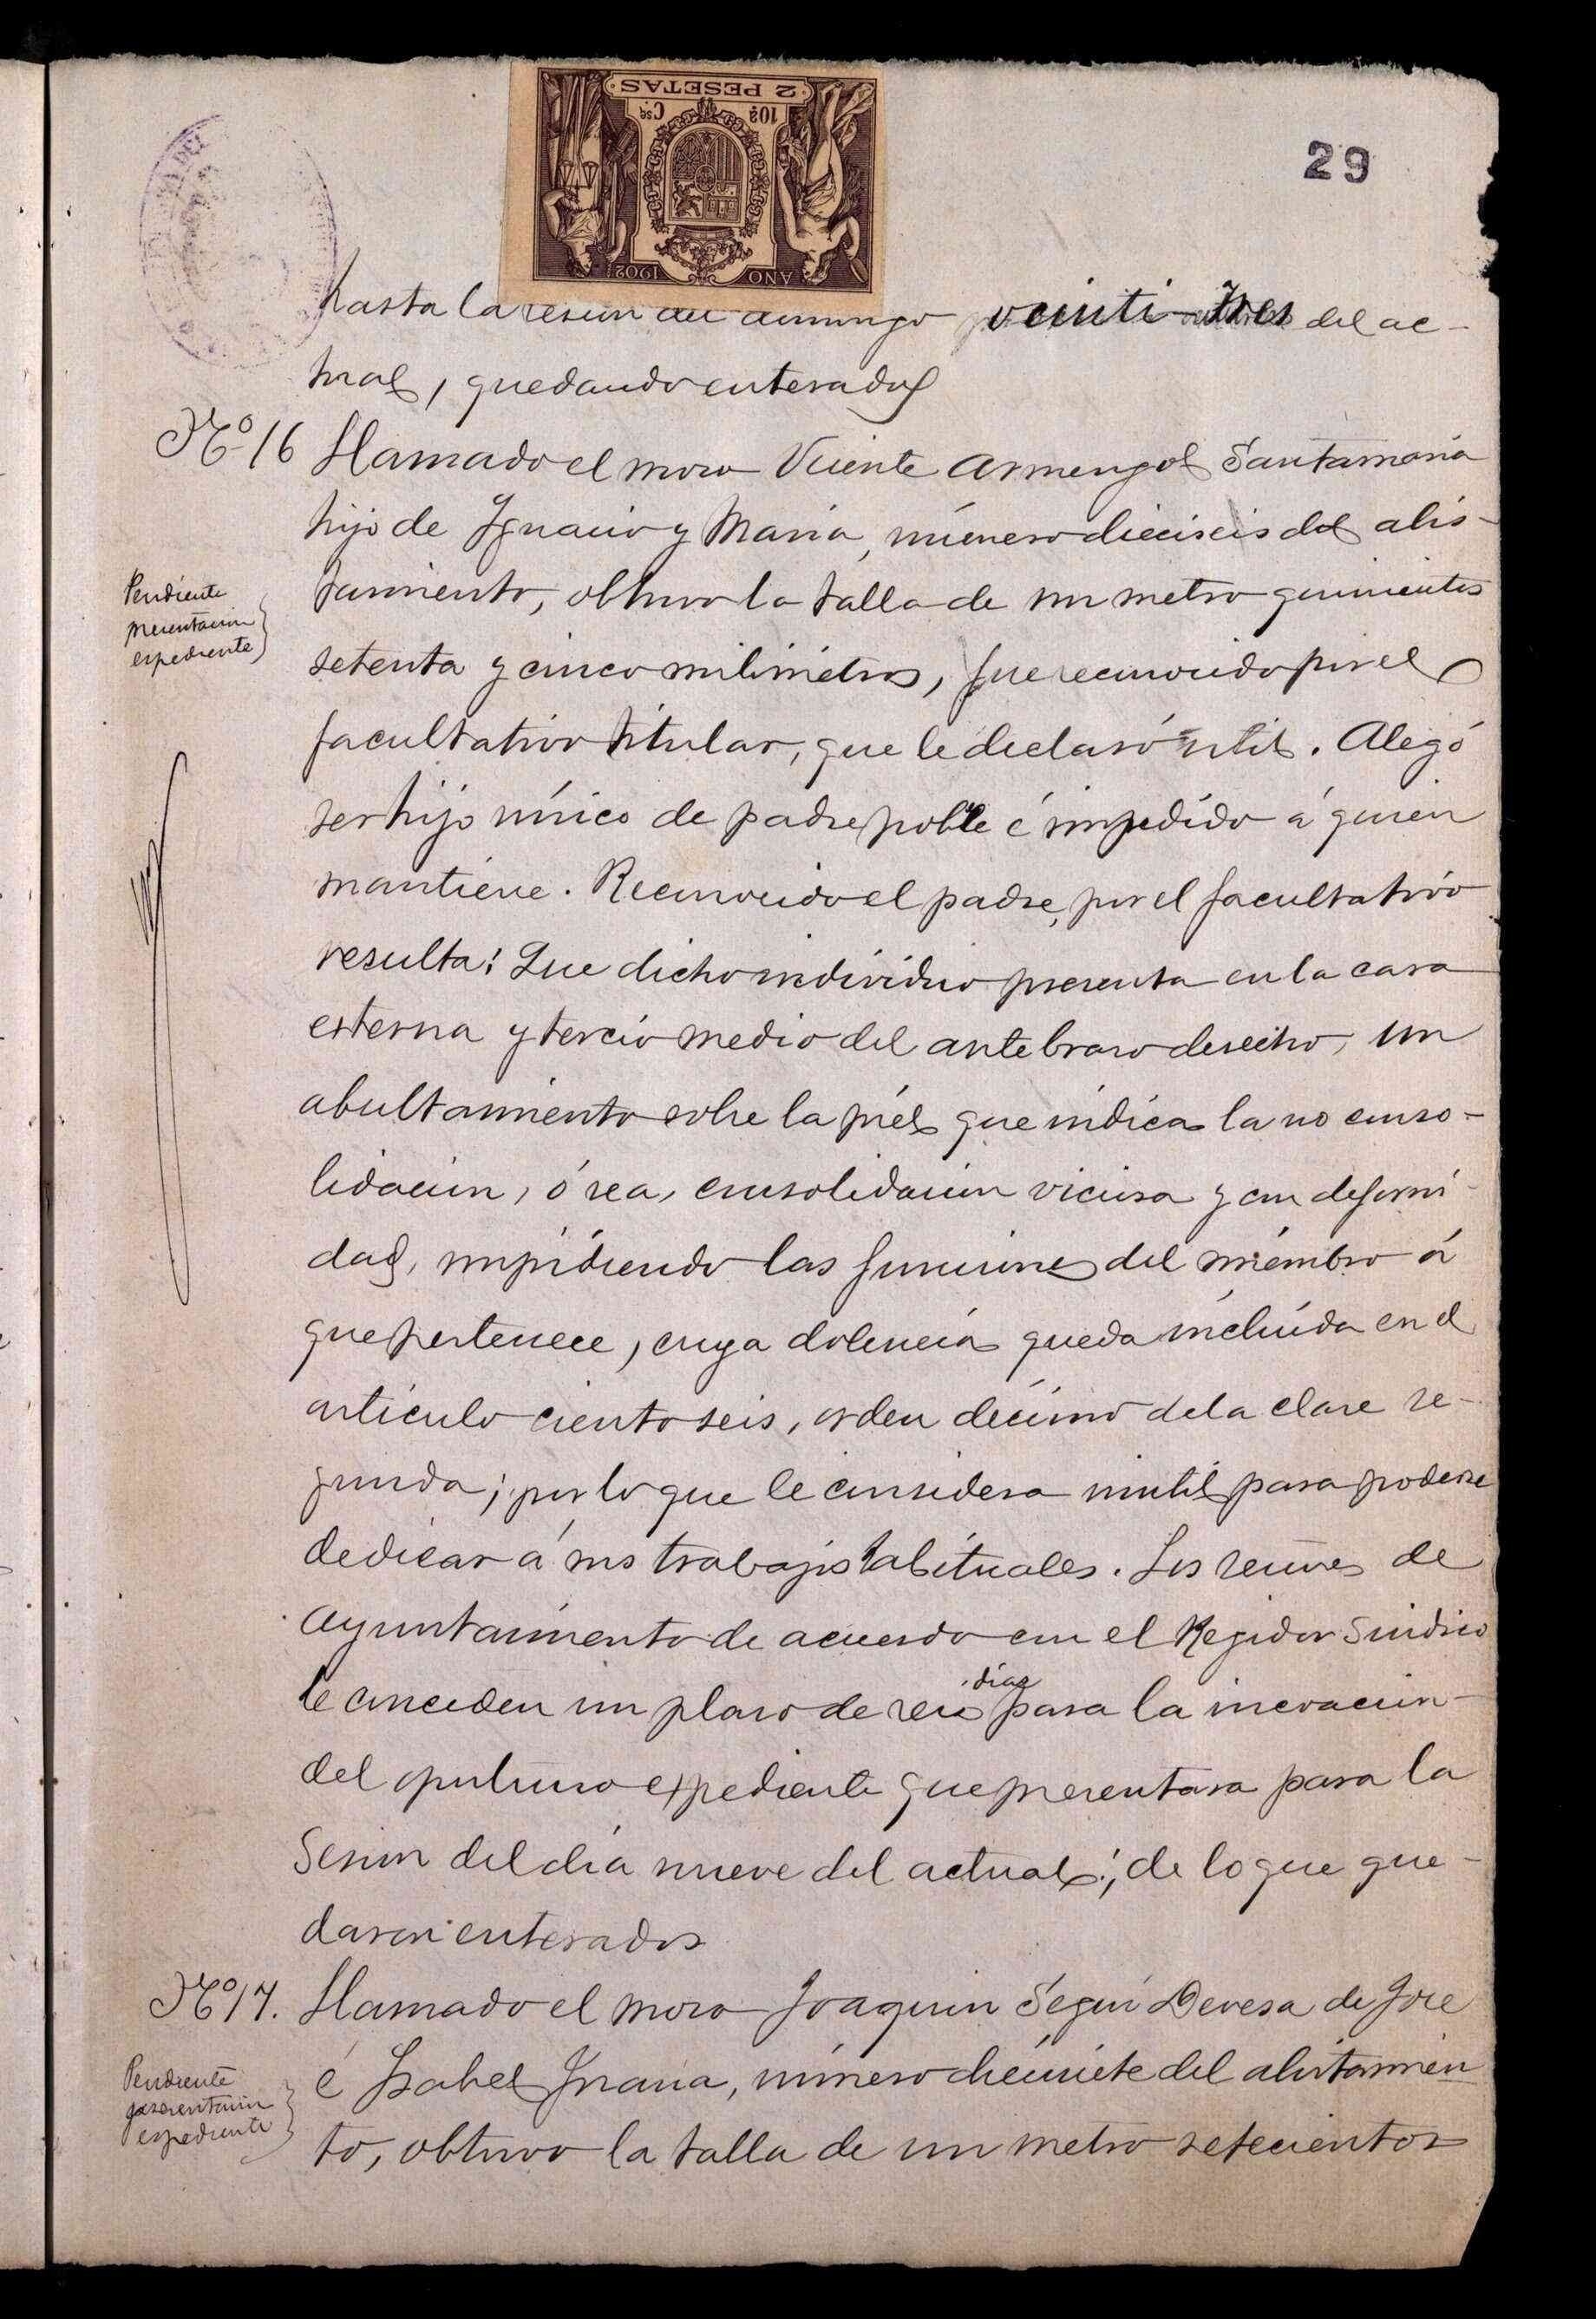 2 PESETAS
10ª Cse
AÑO 1902
29
hasta la sesion del domingo veinti-tres del ac-
tual, quedando enterados
Nº 16 Llamado el mozo Vicente Armengol Santamaria
hijo de Ignacio y Maria, número dieciseis del alis-
tamiento, obtuvo la talla de un metro quinientos
Pendiente
presentacion
espediente
setenta y cinco milímetros, fue reconocido por el
facultativo titular, que le declaró útil. Alegó
ser hijo único de padre pobre é impedido á quien
mantiene. Reconocido el padre, por el facultativo
resulta: Que dicho individuo presenta en la cara
esterna y tercio medio del antebrazo derecho, un
abultamiento sobre la piel que indica la no conso-
lidacion, ó sea, consolidacion viciosa y con deformi-
dad, impidiendo las funciones del miembro á
que pertenece, cuya dolencia queda incluída en el
artículo ciento seis, orden décimo de la clase se-
gunda; por lo que le considera inutil para poderse
dedicar á sus trabajos habituales. Los señores de
Ayuntamiento de acuerdo con el Regidor Sindico
le conceden un plazo de seis días para la incoacion
del oportuno expediente que presentara para la
Sesion del día nueve del actual; de lo que que-
daron enterados
Nº 17. Llamado el mozo Joaquin Seguí Devesa de Jose
é Isabel Juana, número diecisiete del alistamien
Pendiente
presentacion
espediente
to, obtuvo la talla de un metro setecientos